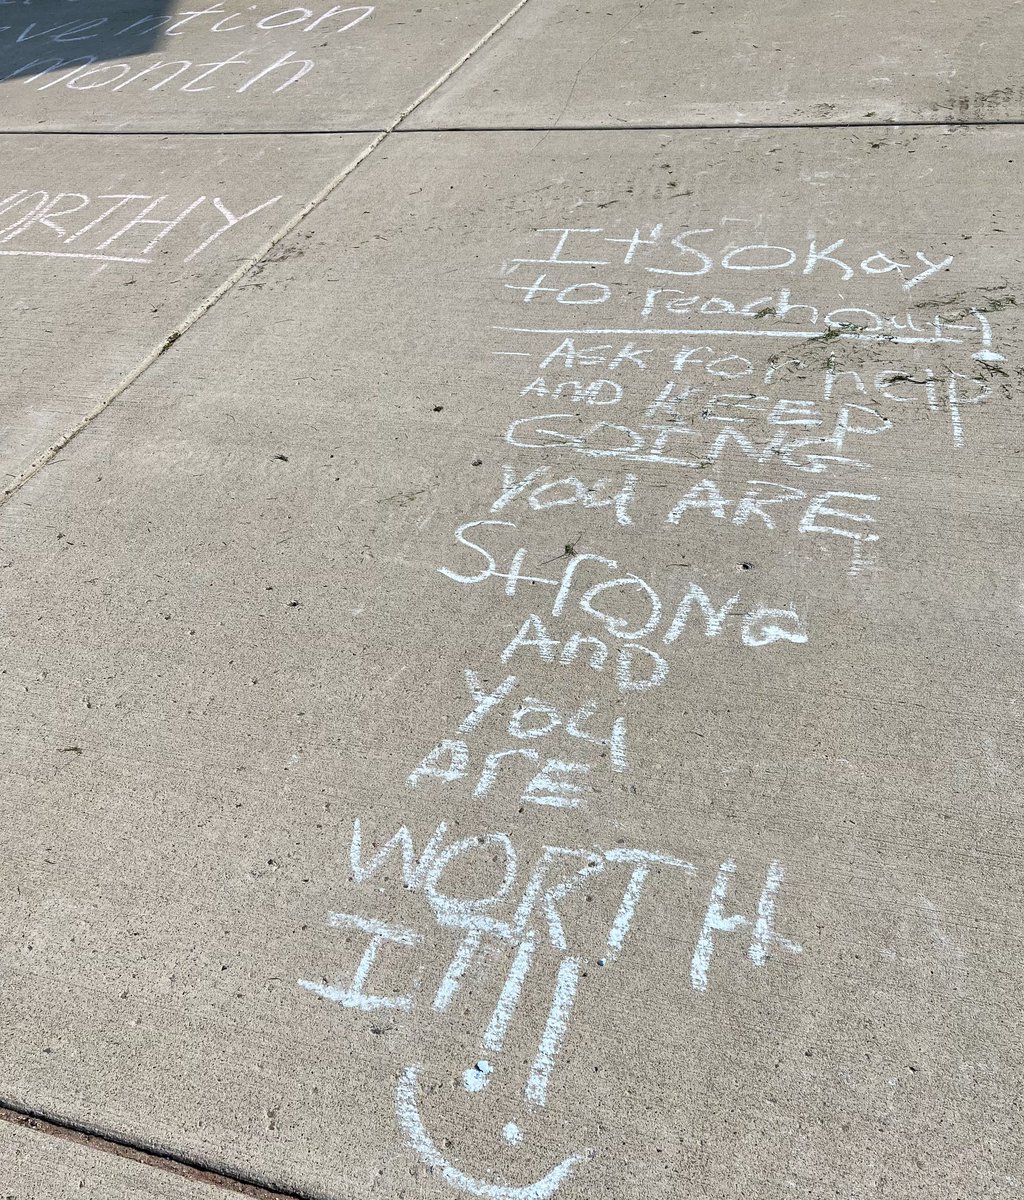 month
It's okay
to reach out!
- Ask for help
AND KEEP
GOING
You ARE
StrONG
AnD
You
ArE
WORTH
IT!!